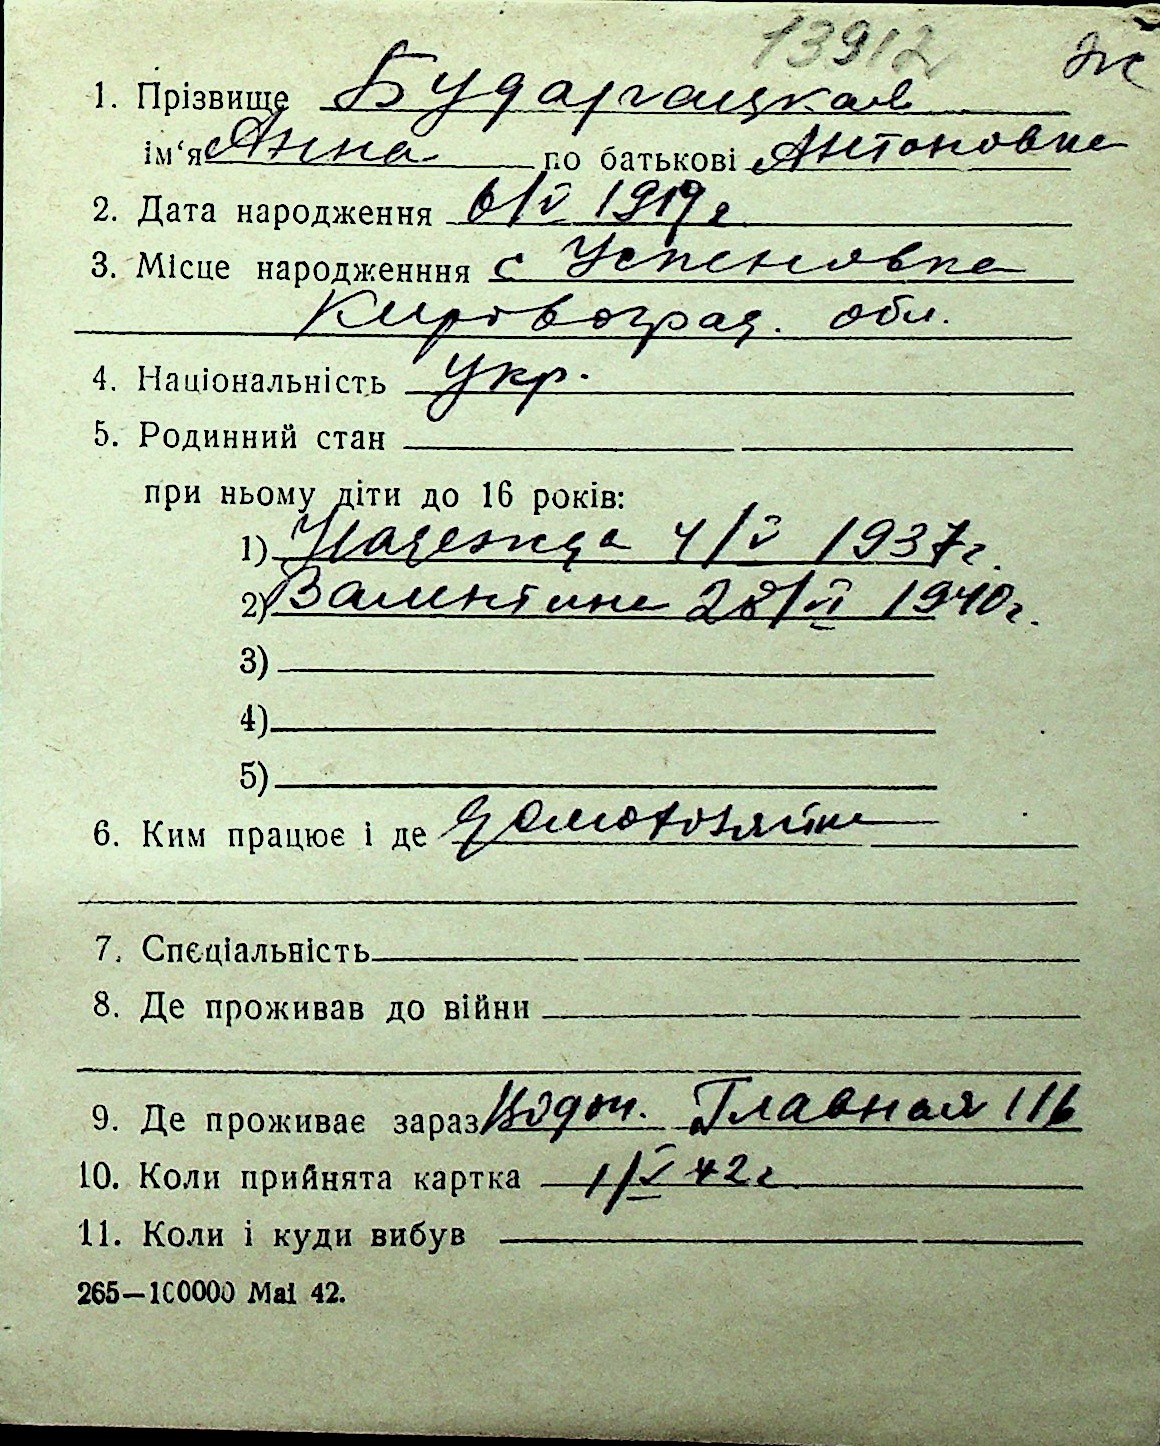 13912 ж
1. Прізвище Бударгацкая
ім‘я Анна по батькові Антоновна
2. Дата народження 6/V 1919 г
3. Місце народженння с Успеновка
Кировоград. обл.
4. Національність Укр.
5. Родинний стан
при ньому діти до 16 років:
1) Надежда 4/V 1937 г.
2) Валентина 28/VI 1940 г.
3)
4)
5)
6. Ким працює і де домохозяйка
7. Спєціальність
8. Де проживав до війни
9. Де проживає зараз Главная 116
10. Коли прийнята картка 1/V 42 г.
11. Коли і куди вибув
265—100000 Маі 42.